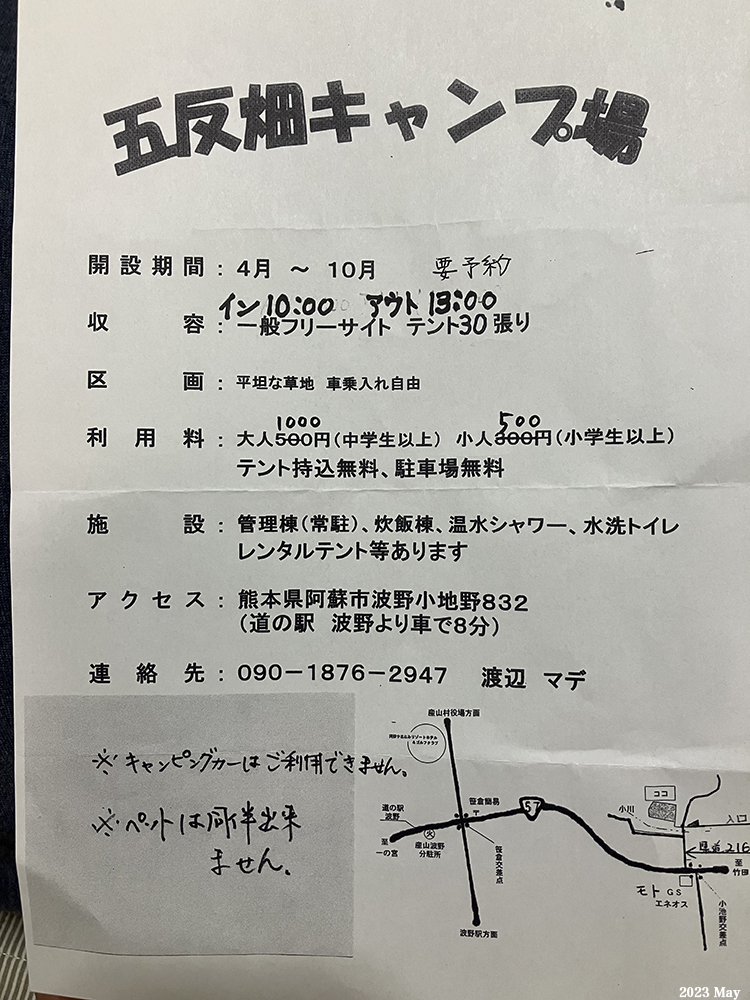 五反畑キャンプ場
開設期間：4月 ～ 10月 要予約
イン10:00 アウト13:00
収容：一般フリーサイト テント30張り
区画：平坦な草地 車乗入れ自由
1000 500
利用料：大人500円(中学生以上) 小人300円(小学生以上)
テント持込無料、駐車場無料
施設：管理棟(常駐)、炊飯棟、温水シャワー、水洗トイレ
レンタルテント等あります
アクセス：熊本県阿蘇市波野小地野832
(道の駅 波野より車で8分)
連絡先：090－1876－2947 渡辺 マデ
※キャンピングカーはご利用できません。
※ペットは同伴出来
ません。
産山村役場方面
＆ゴルフクラブ
笹倉簡易
〒
57
道の駅
波野
火
産山波野
分駐所
至
一の宮
笹倉交差点
波野駅方面
ココ
小川
入口
県道216
至
竹田
モト GS
エネオス
小池野交差点
2023 May